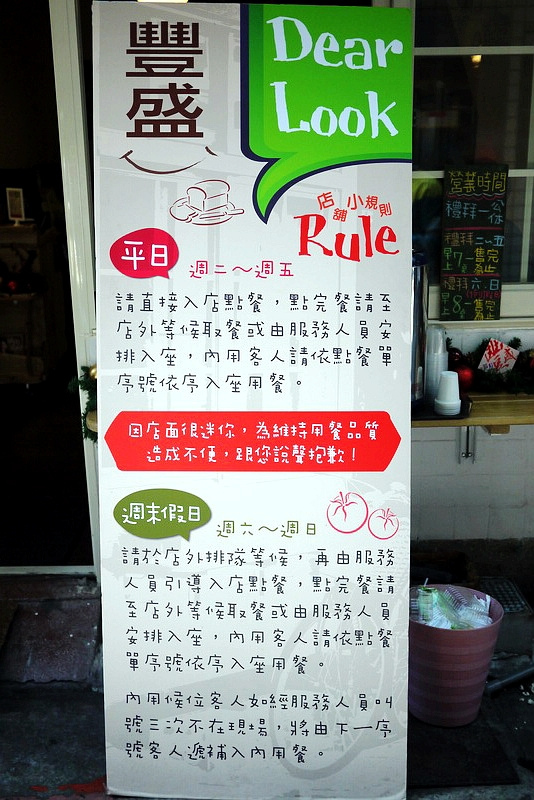 豐盛
Dear
Look
店舖小規則
Rule
平日
週二～週五
請直接入店點餐，點完餐請至
店外等候取餐或由服務人員安
排入座，內用客人請依點餐單
序號依序入座用餐。
因店面很迷你，為維持用餐品質
造成不便，跟您說聲抱歉！
週末假日
週六～週日
請於店外排隊等候，再由服務
人員引導入店點餐，點完餐請
至店外等候取餐或由服務人員
安排入座，內用客人請依點餐
單序號依序入座用餐。
內用候位客人如經服務人員叫
號三次不在現場，將由下一序
號客人遞補入內用餐。
營業時間
禮拜一公休
禮拜二～五
早7－售完為止
禮拜六.日
早8